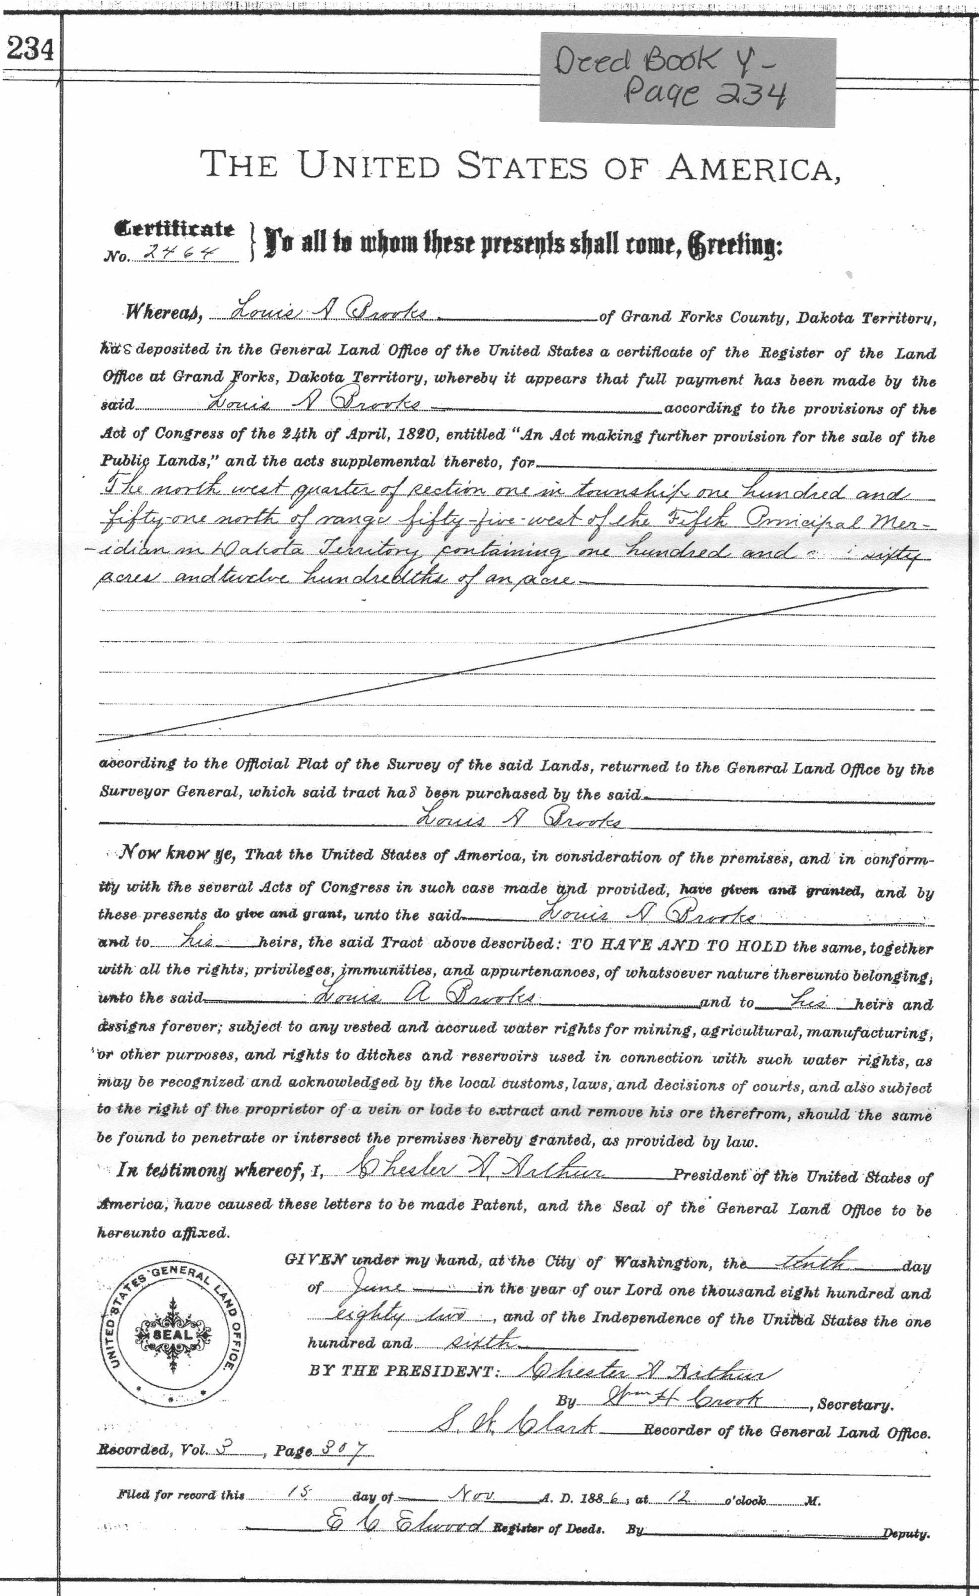 234
Deed Book Y-
Page 234
THE UNITED STATES OF AMERICA,
Certificate
No. 2464
To all to whom these presents shall come, Greeting:
Whereas, Louis A Brooks of Grand Forks County, Dakota Territory,
has deposited in the General Land Office of the United States a certificate of the Register of the Land
Office at Grand Forks, Dakota Territory, whereby it appears that full payment has been made by the
said Louis A Brooks according to the provisions of the
Act of Congress of the 24th of April, 1820, entitled "An Act making further provision for the sale of the
Public Lands," and the acts supplemental thereto, for
The north west quarter of section one in township one hundred and
fifty-one north of range fifty-five west of the Fifth Principal Mer-
-idian in Dakota Territory, containing one hundred and sixty
acres and twelve hundredths of an acre
according to the Official Plat of the Survey of the said Lands, returned to the General Land Office by the
Surveyor General, which said tract has been purchased by the said
Louis A Brooks
Now know ye, That the United States of America, in consideration of the premises, and in conform-
ity with the several Acts of Congress in such case made and provided, have given and granted, and by
these presents do give and grant, unto the said Louis A Brooks
and to his heirs, the said Tract above described: TO HAVE AND TO HOLD the same, together
with all the rights, privileges, immunities, and appurtenances, of whatsoever nature thereunto belonging,
unto the said Louis A Brooks and to his heirs and
assigns forever; subject to any vested and accrued water rights for mining, agricultural, manufacturing,
or other purposes, and rights to ditches and reservoirs used in connection with such water rights, as
may be recognized and acknowledged by the local customs, laws, and decisions of courts, and also subject
to the right of the proprietor of a vein or lode to extract and remove his ore therefrom, should the same
be found to penetrate or intersect the premises hereby granted, as provided by law.
In testimony whereof, I, Chester A. Arthur President of the United States of
America, have caused these letters to be made Patent, and the Seal of the General Land Office to be
hereunto affixed.
GIVEN under my hand, at the City of Washington, the tenth day
of June in the year of our Lord one thousand eight hundred and
eighty two, and of the Independence of the United States the one
hundred and sixth
UNITED STATES GENERAL LAND OFFICE.
SEAL
BY THE PRESIDENT: Chester A Arthur
By Wm H Crook, Secretary.
S. W. Clark Recorder of the General Land Office.
Recorded, Vol. 3, Page 307
Filed for record this 15 day of Nov A. D. 1886, at 12 o'clock M.
E C Elwood Register of Deeds. By Deputy.